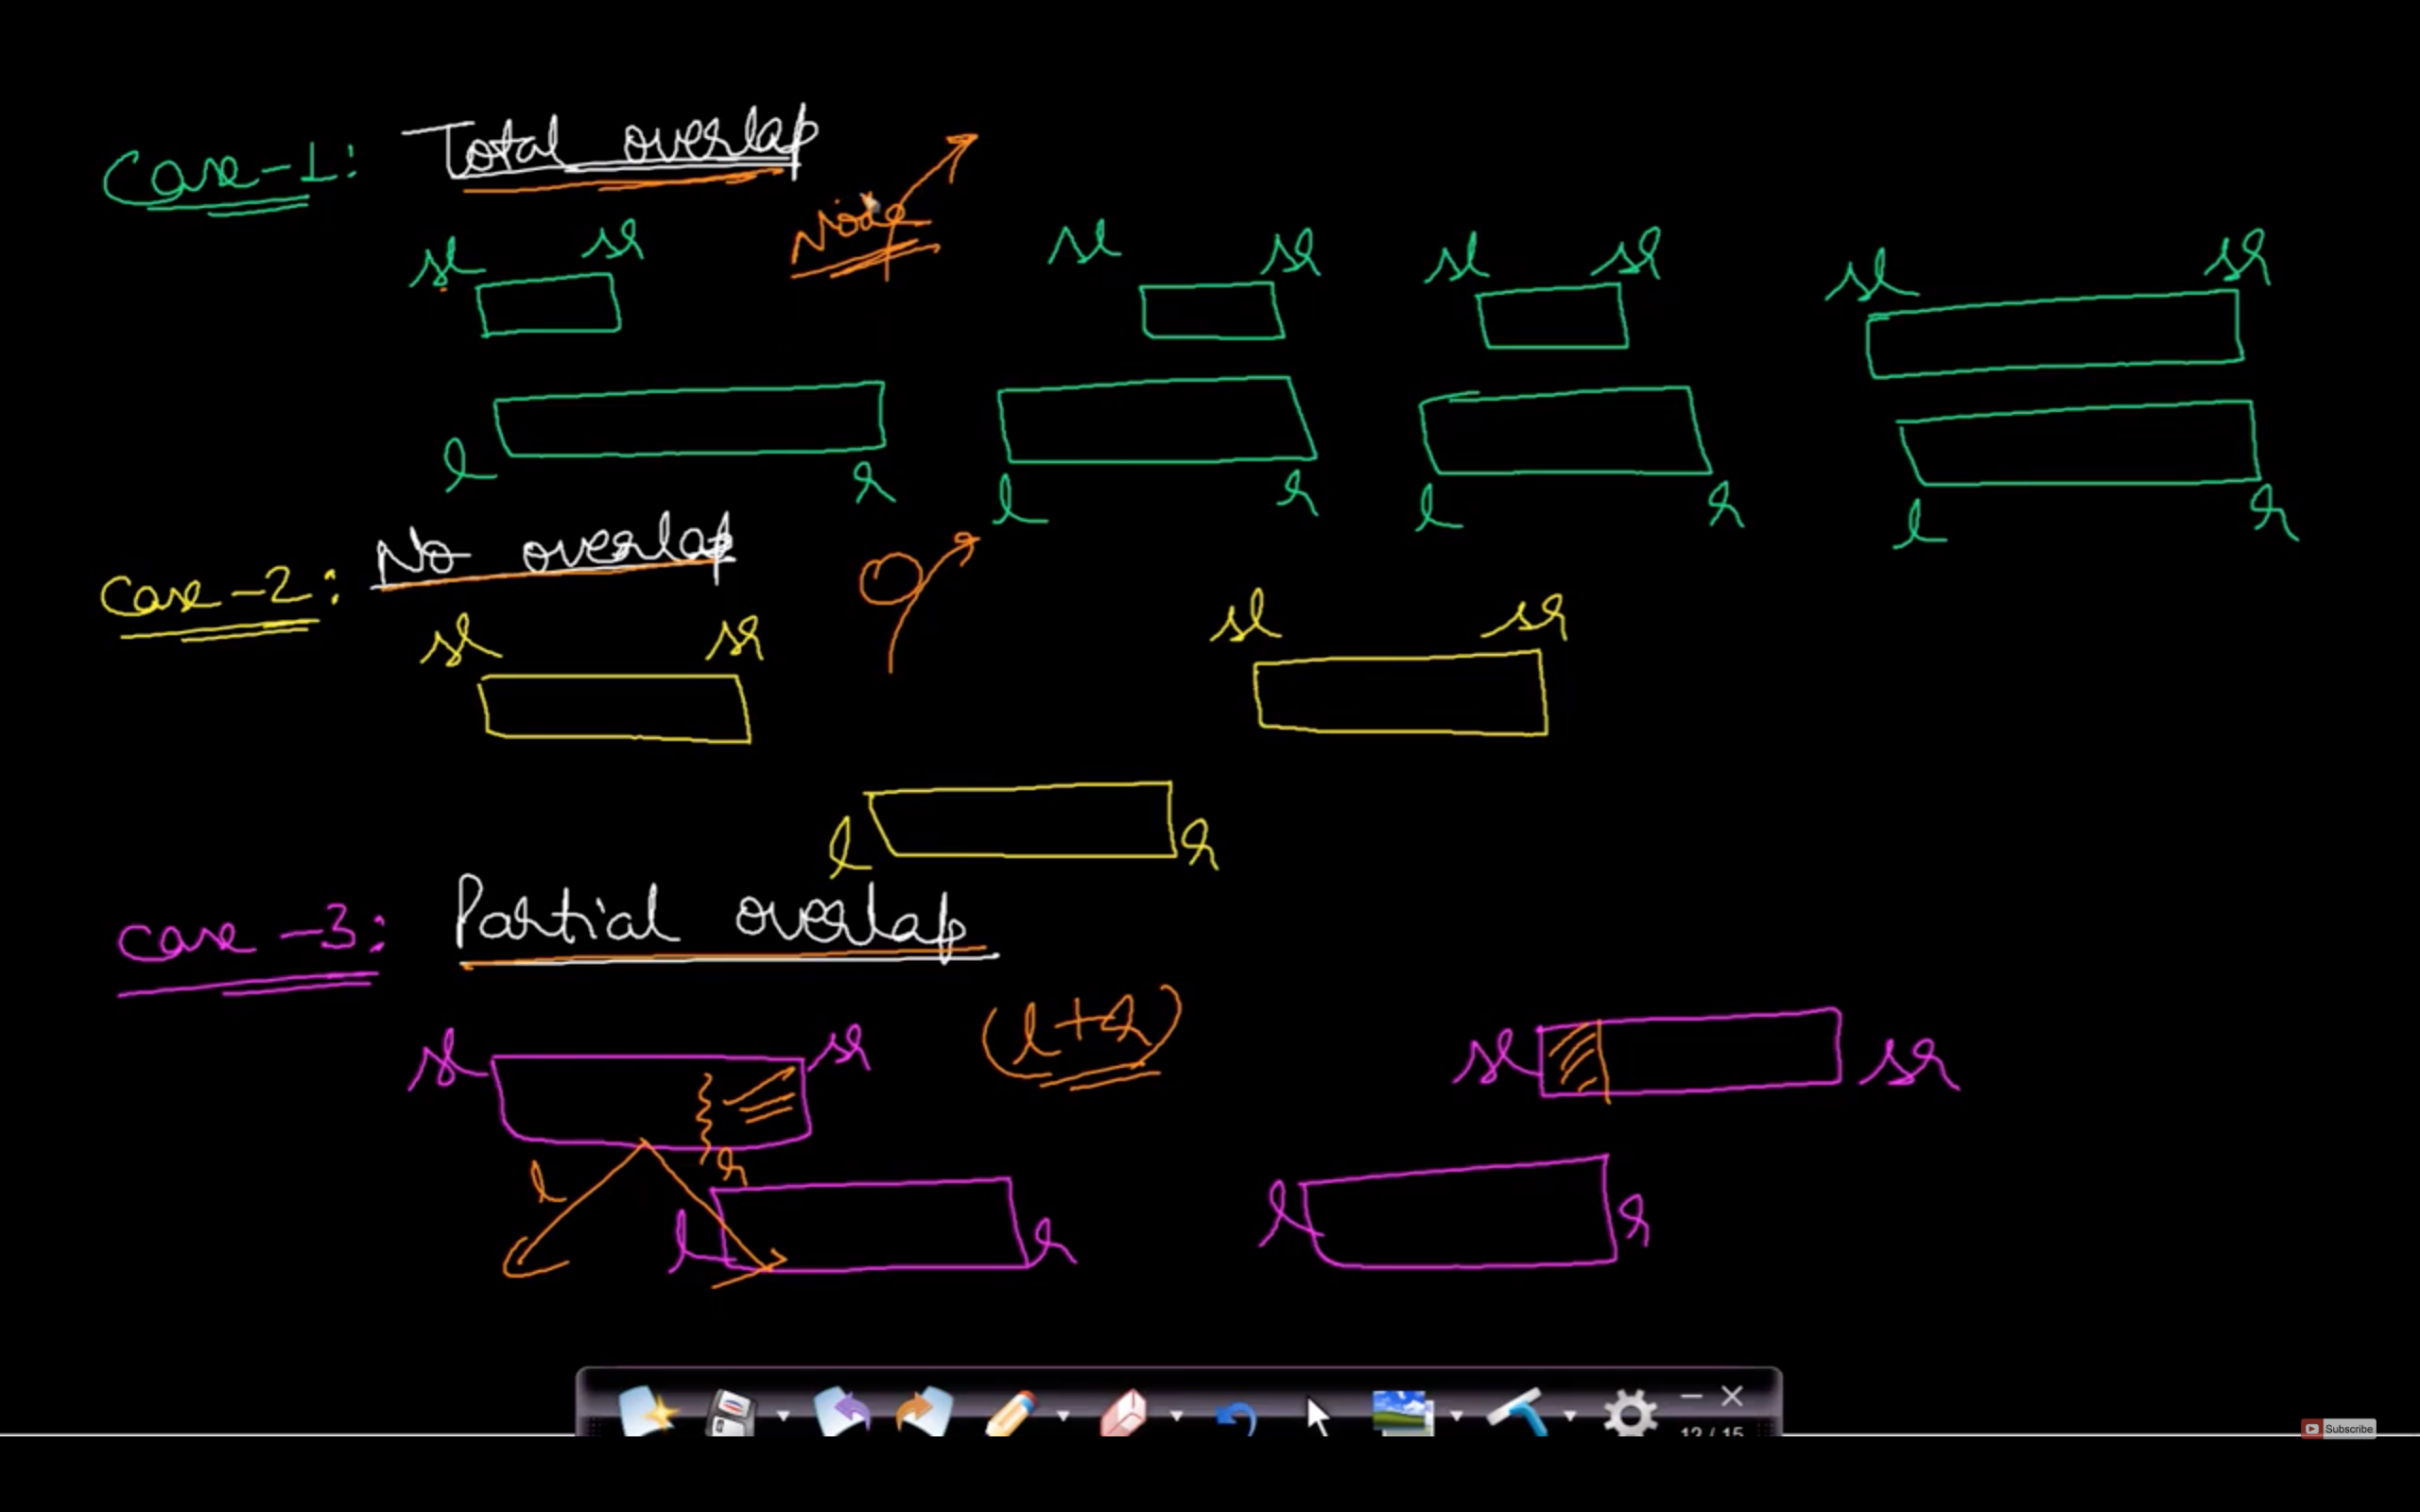 Case-1: Total overlap
Node
sl sr sl sr sl sr sl sr
l r l r l r l r
Case-2: No overlap
0
sl sr sl sr
l r
Case-3: Partial overlap
(l+r)
sl sr sl sr
l r
l r l r
12/15
Subscribe